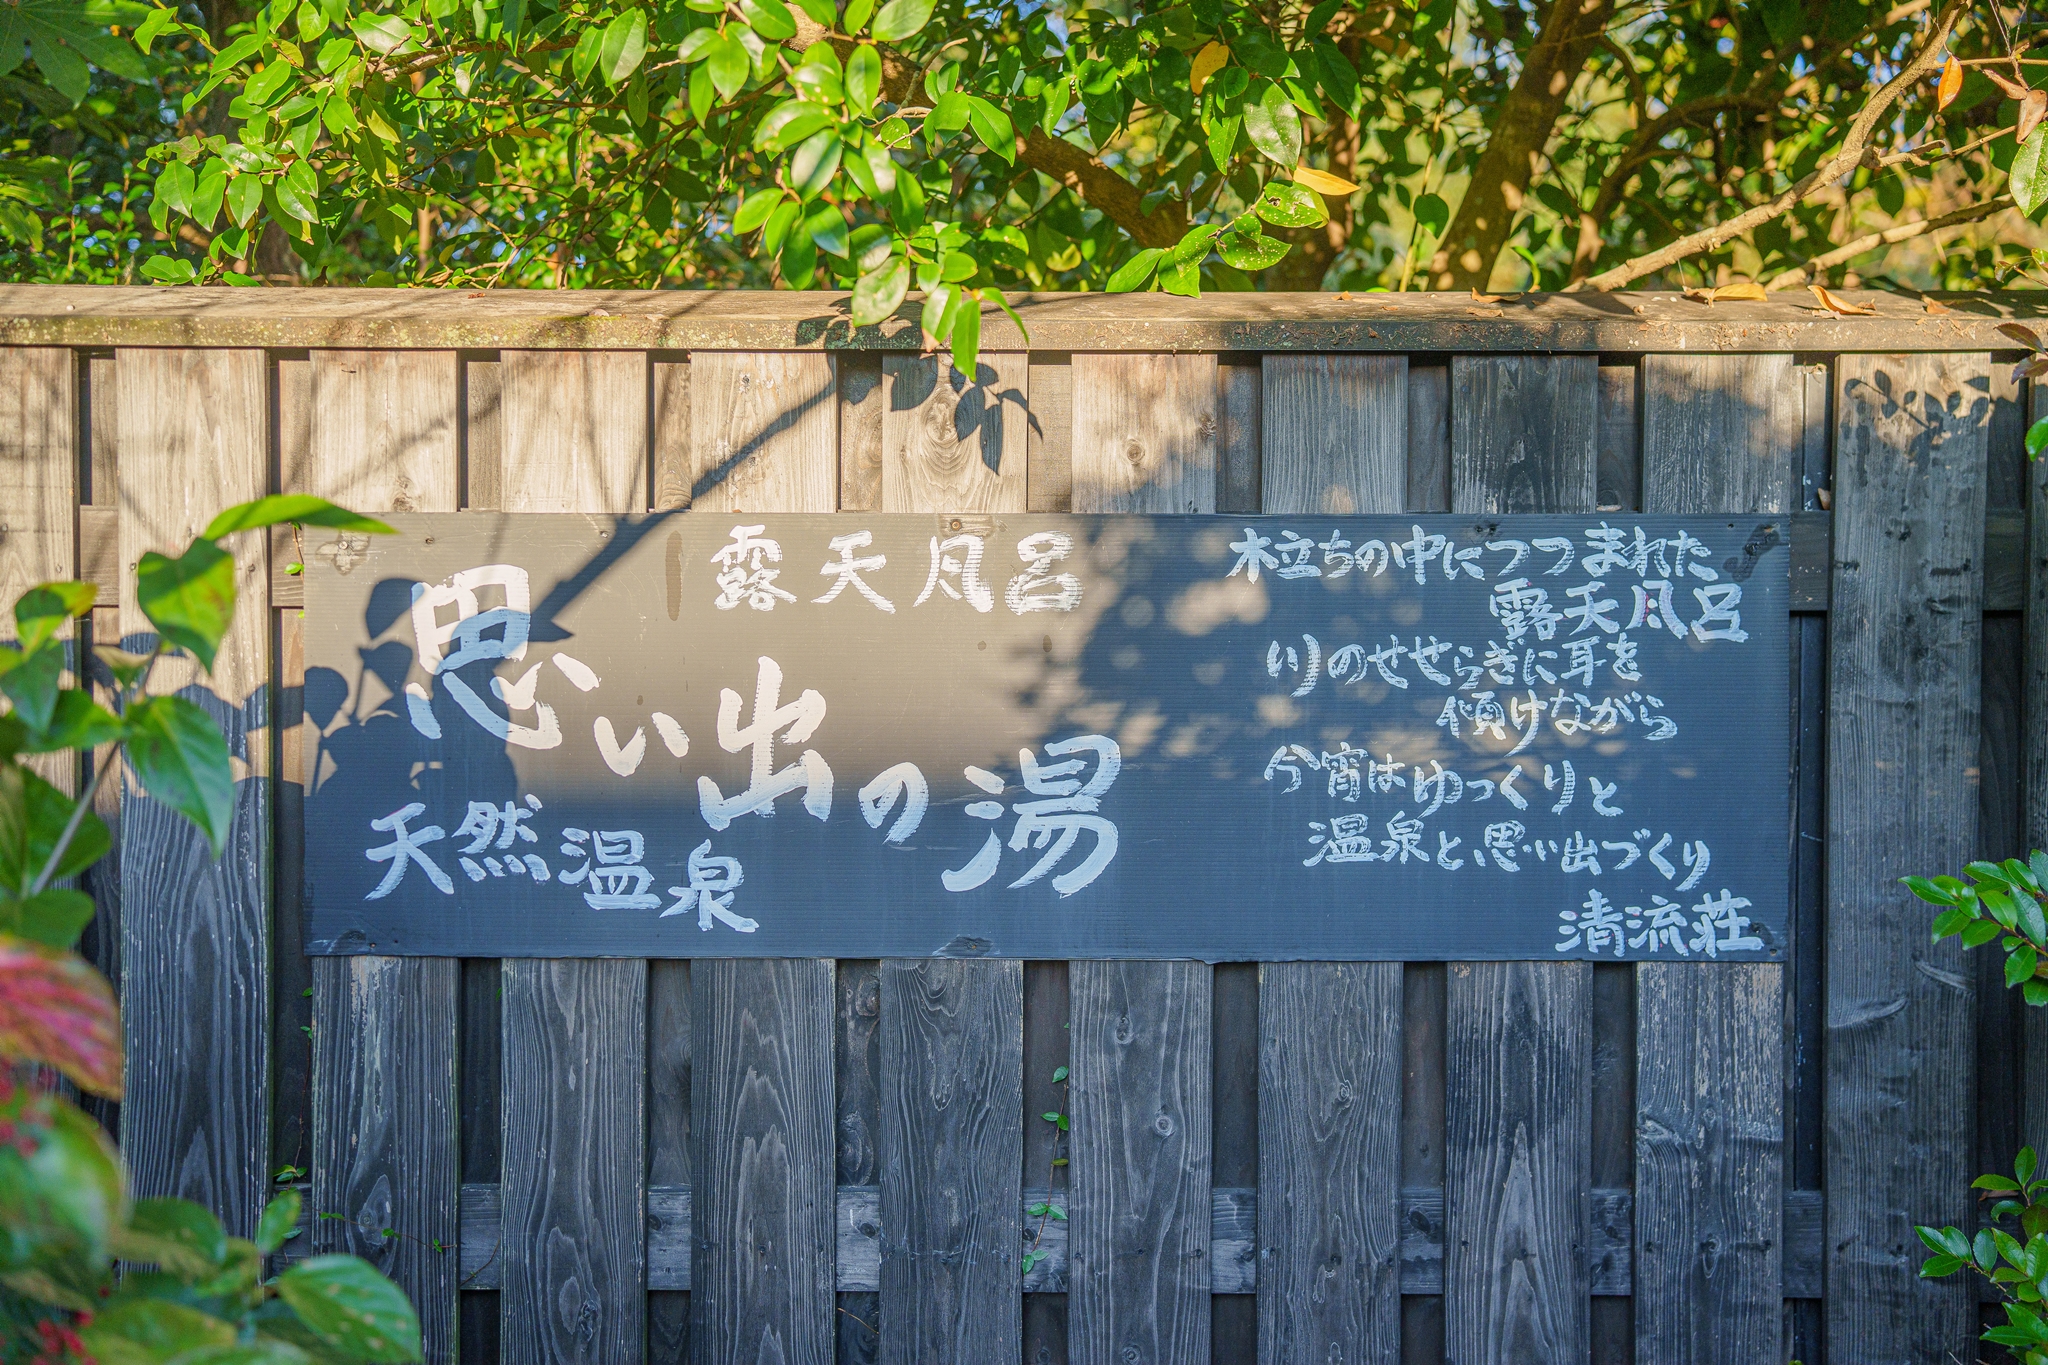 露天風呂
思い出の湯
天然温泉
木立ちの中につつまれた
露天風呂
川のせせらぎに耳を
傾けながら
今宵はゆっくりと
温泉と思い出づくり
清流荘